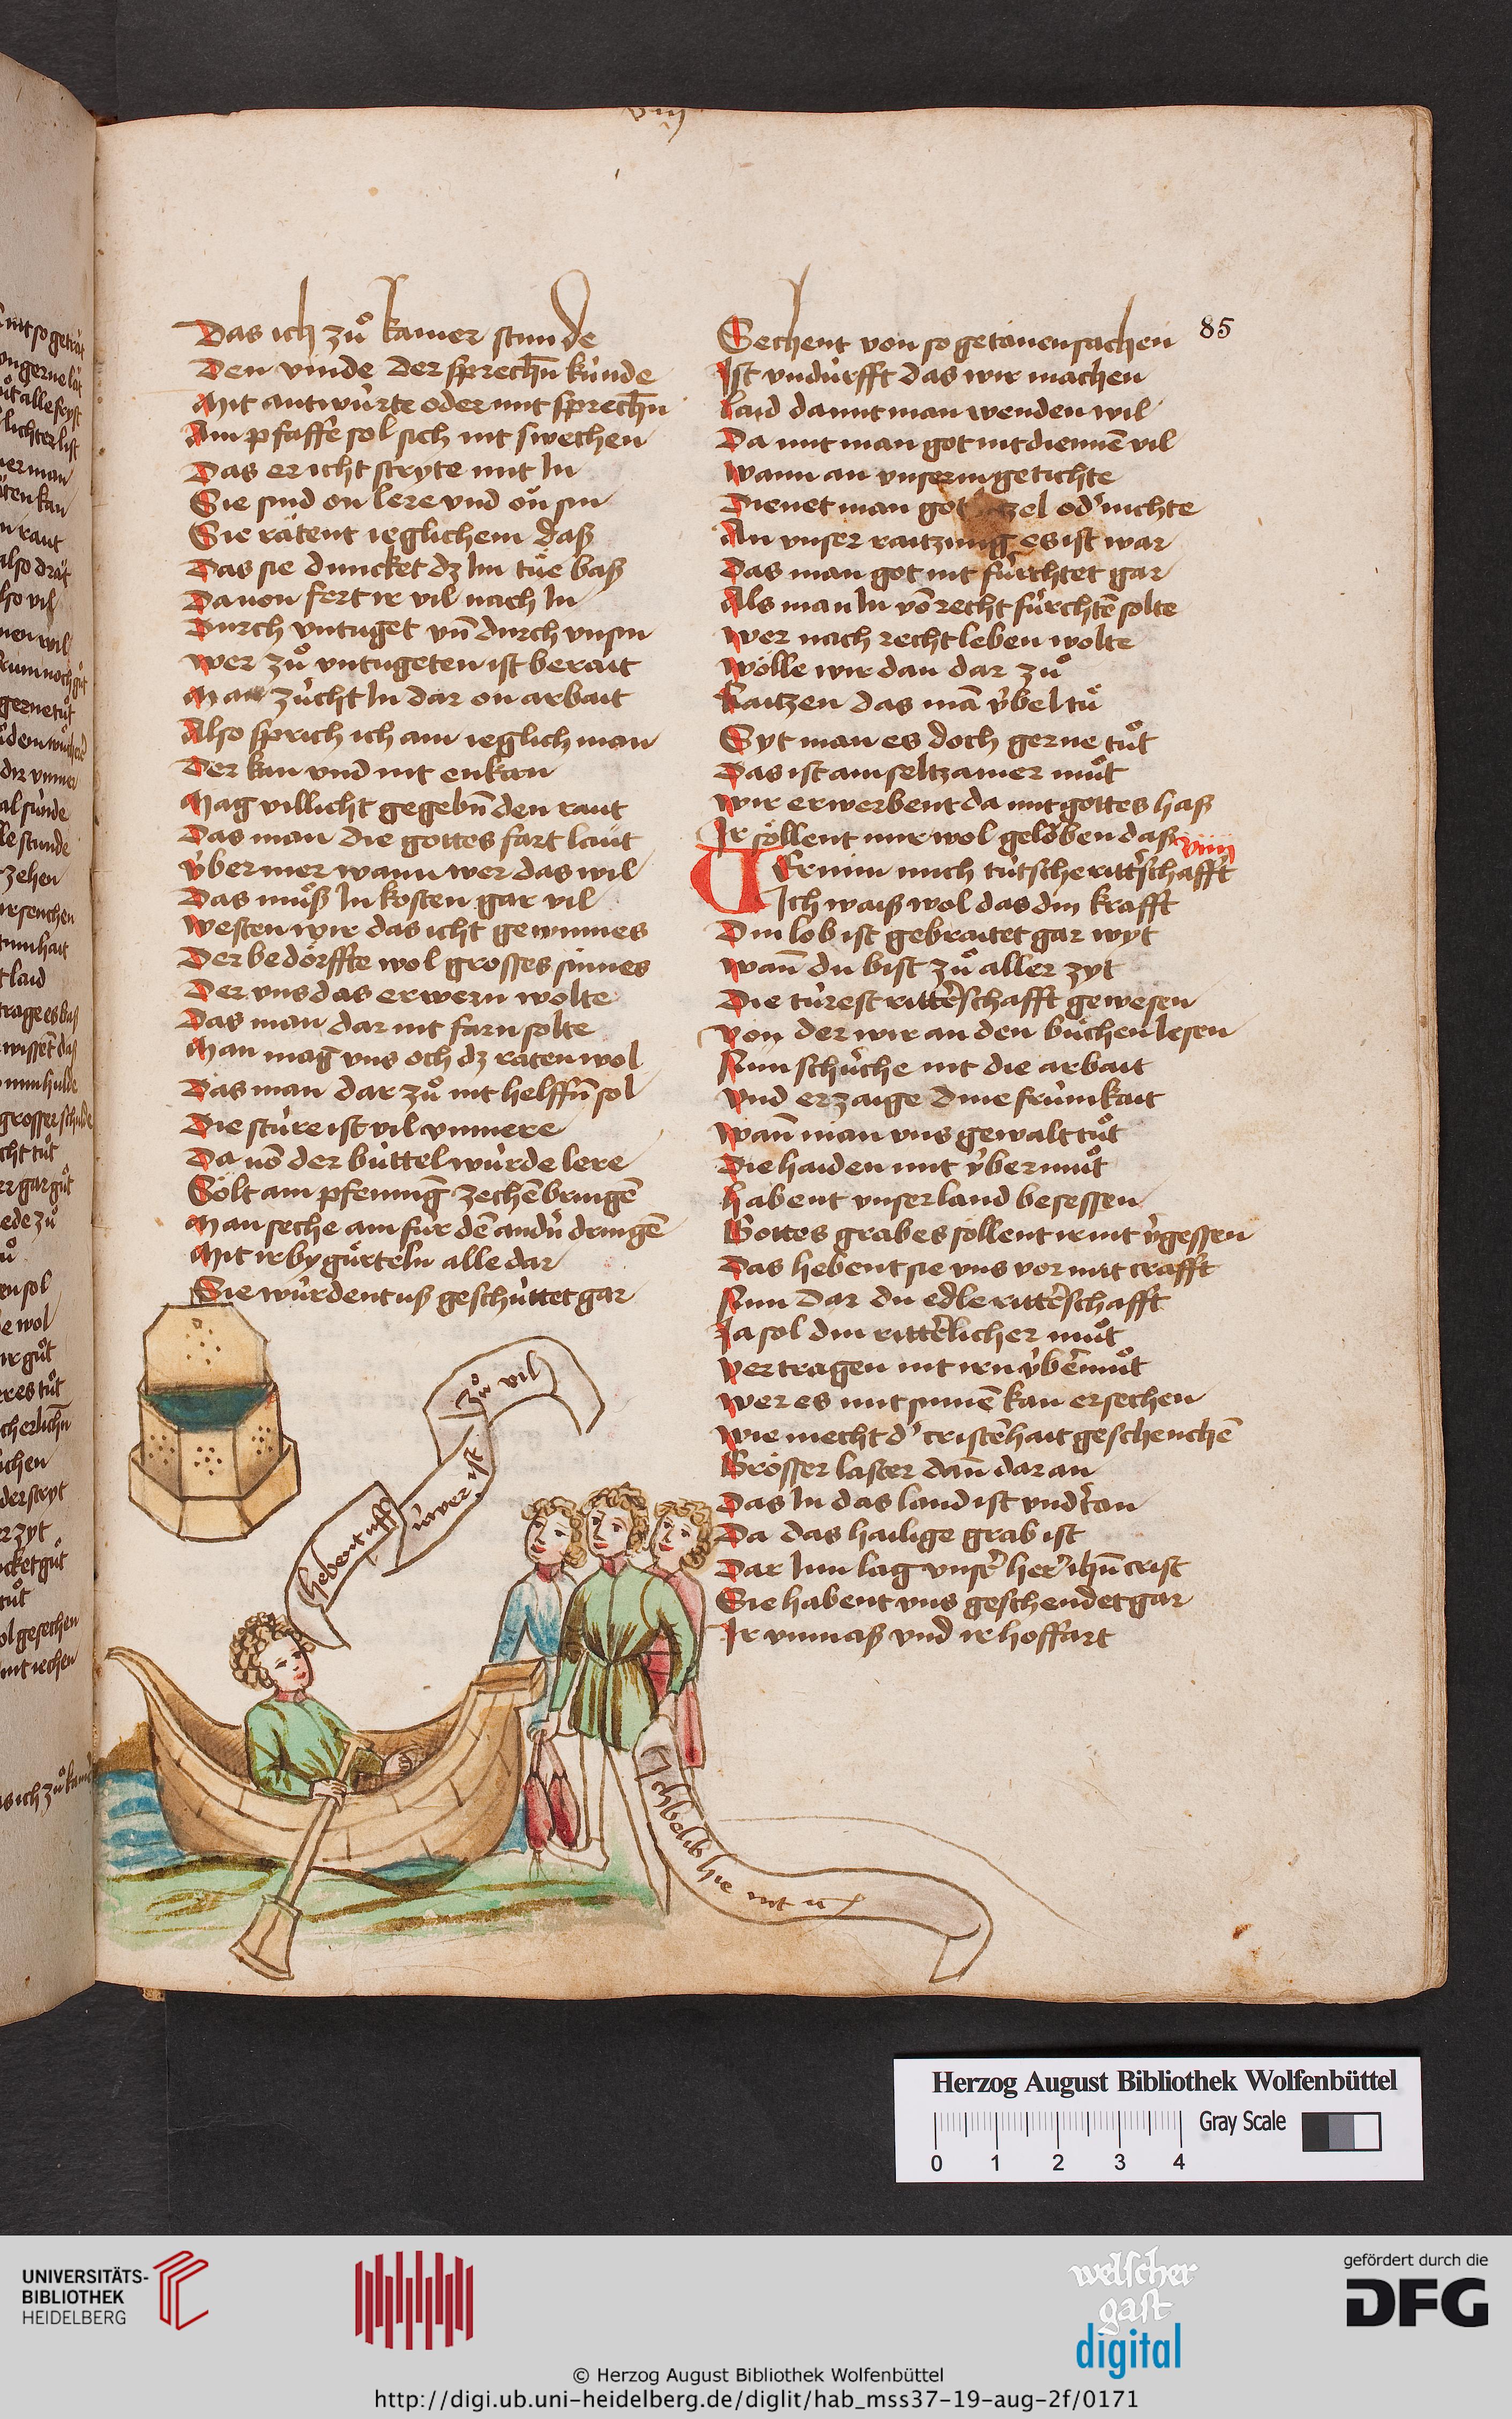 85
Das ich zuͦ kamer stunde
Den vinde der sprechn̄ kúnde
Mit antwúrte oder mit sprechn̄
Ain pfaffe sol sich nit swechen
Das er icht stryte mit In
Sie sind on lere vnd on sin
Sie rätent ieglichem daß
Das sie duncket dz Im tüe baß
Dauon fert ir vil nach In
Durch vntuget vn̄ durch vnsin
wer zuͦ vntugeten ist berait
Man zúcht In dar on arbait
Also sprich ich ain ieglich man
Der kan vnd nit enkan
Mag villicht gegebn̄ den raut
Das man die gottes fart laut
v́ber mer wann wer das wil
Das muͦß In kosten gar vil
westen wir das icht gewinnes
Der bedörffte wol grosses sinnes
Der vns das erwern wolte
Das man dar nit farn solte
Man mag vns och dz raten wol
Das man dar zuͦ nit helffn̄ sol
Die stúre ist vil vnmere
Da uō der búttel wúrde lere
Sölt ain pfennig zechē bringē
Man seche ain fur dē andn̄ dringē
Mit ir bygúrteln alle dar
Sie wúrdent uß geschúttet gar
Sechent von so getanen sachen
Ist vndúrfft das wir machen
laid damit man wenden wil
Da mit man got nit diennē vil
wann an vnserm getichte
Dienet man got zel od' nichte
An vnser raitzung es ist war
Das man got nit fúrchtet gar
Als man In vō recht fúrchtē solte
wer nach recht leben wolte
wölle wir dan dar zuͦ
Raitzen das mā v́bel tuͤ
Syt man es doch gerne tuͦt
Das ist ain seltzamer muͦt
wir erwerbent da mit gottes haß
Ir söllent mir wol gelöben daß
viiii
VErnim mich tútsche ritt'schafft
Ich waiß wol das din krafft
Din lob ist gebraitet gar wyt
wan̄ du bist zuͦ aller zyt
Die túrest ritt'schafft gewesen
von der wir an den buͤchen lesen
Nun schúche nit die arbait
vnd erzaige dine frúmkait
wan̄ man vns gewalt tuͦt
Die haiden mit v́bermuͦt
habent vnser land besessen
Gottes grabes söllent ir nit v'gessen
Das hebent sie vns vor mit crafft
Nun dar du edle ritt'schafft
Ja sol din ritt'licher muͦt
vertragen nit irn v́b'muͦt
wer es mit sinnē kan ersechen
wie mecht d' crist'hait geschenchē
Grösser laster dan̄ dar an
Das In das land ist vnd'tan
Da das hailige grab ist
Dar Inn lag vns' her' ihū crist
Sie habent vns geschendet gar
Ir vnmaß vnd ir hoffart
zuͦ vil
úwer ist
hebent uff
Ich belib hie mit
Herzog August Bibliothek Wolfenbüttel
0 1 2 3 4
Gray Scale
UNIVERSITÄTS-
BIBLIOTHEK
HEIDELBERG
welscher
gast
digital
gefördert durch die
DFG
© Herzog August Bibliothek Wolfenbüttel
http://digi.ub.uni-heidelberg.de/diglit/hab_mss37-19-aug-2f/0171